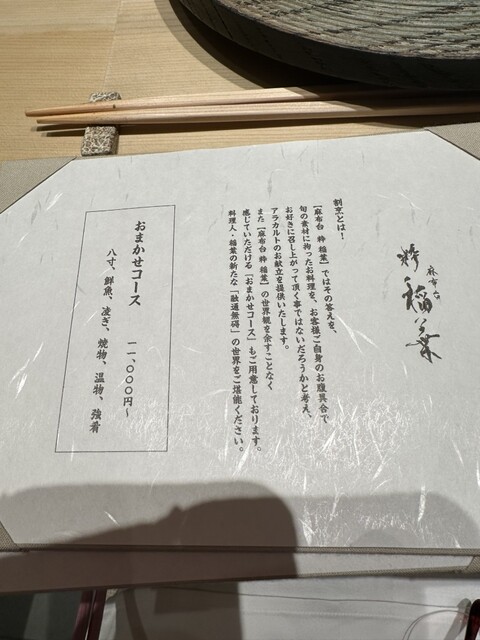 麻布台
粋 稲葉
割烹とは！
【麻布台 粋 稲葉】ではその答えを、
旬の素材に拘ったお料理を、お客様ご自身のお腹具合で
お好きに召し上がって頂く事ではないだろうかと考え、
アラカルトのお献立を提供いたします。
また【麻布台 粋 稲葉】の世界観を余すことなく
感じていただける「おまかせコース」もご用意しております。
料理人・稲葉の新たな「融通無碍」の世界をご堪能ください。
おまかせコース 一一、〇〇〇円〜
八寸、鮮魚、凌ぎ、焼物、温物、強肴